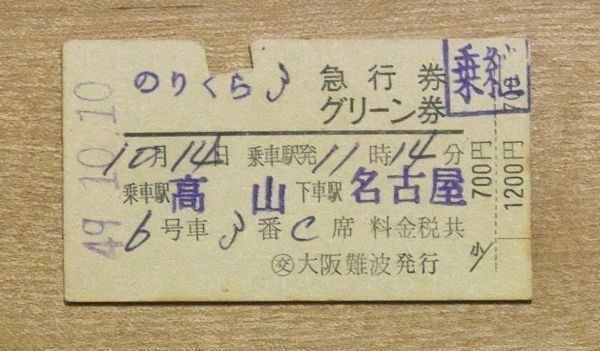 のりくら3 急行券
グリーン券
乗継
10月14日 乗車駅発11時14分
乗車駅 高山 下車駅 名古屋
6号車3番C席 料金税共
㊋大阪難波発行
700円
1200円
49.10.10